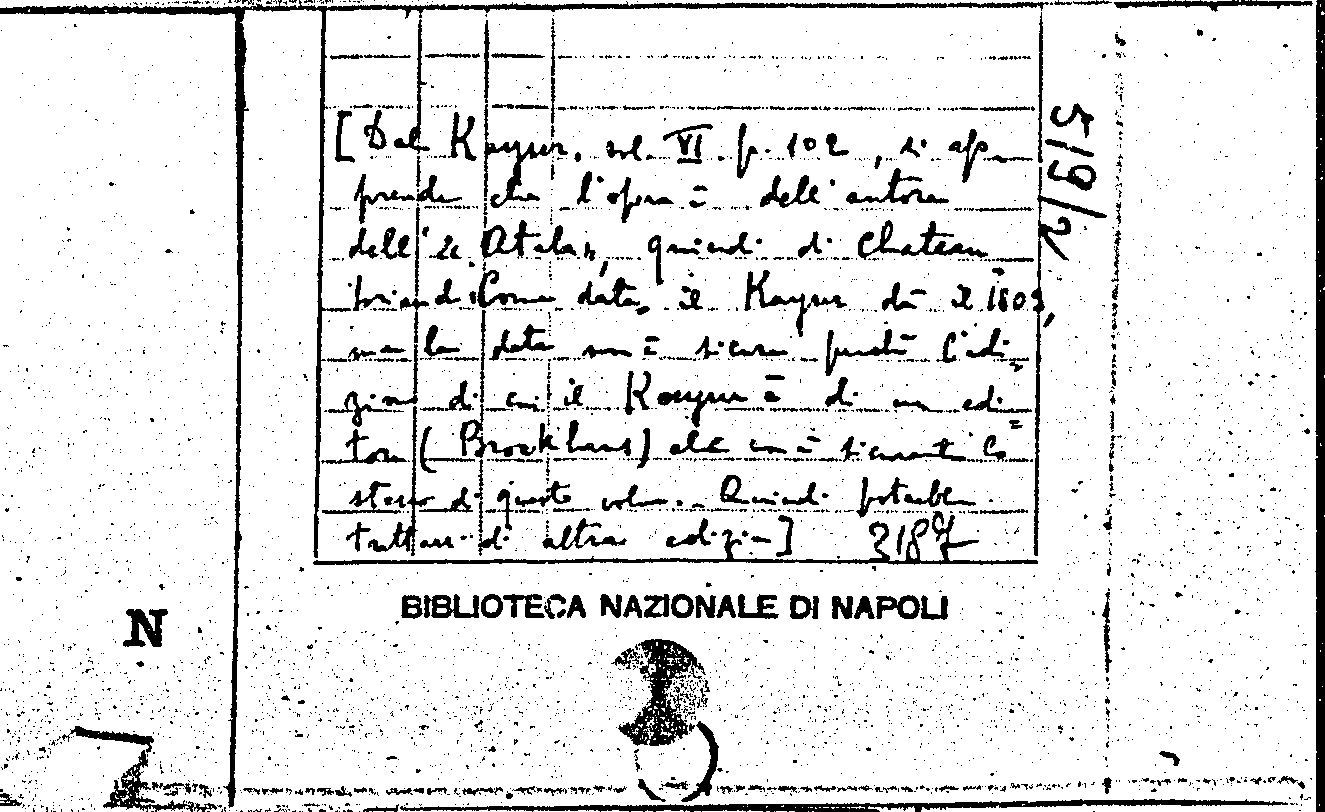 [Dal Kayser, vol. VI. p. 102, si ap-
prende che l'opera è dell'autore
dell'" Atala", quindi di Chateau
briand. Come data, il Kayser dà il 1803,
ma la data non è sicura perché l'edi=
zione di cui il Kayser è di un edi=
tore (Brockhaus) che non è
stesso di questo volume. Quindi potrebbe
trattarsi di altra edizione] 218
BIBLIOTECA NAZIONALE DI NAPOLI
N